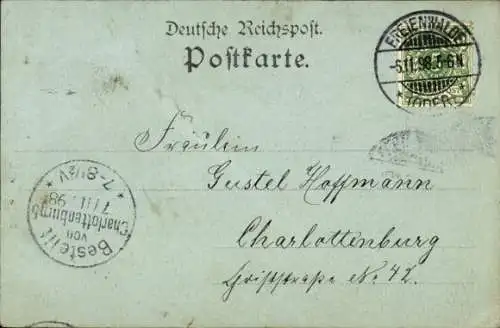 Deutsche Reichspost.
Postkarte.
FREIENWALDE
-6.11.98.5-6N.
* (ODER) *
Fräulein
Gustel Hoffmann
Charlottenburg
N. 42.
Bestellt
vom
Charlottenburg 5
7/11.98
* 7-8½V *